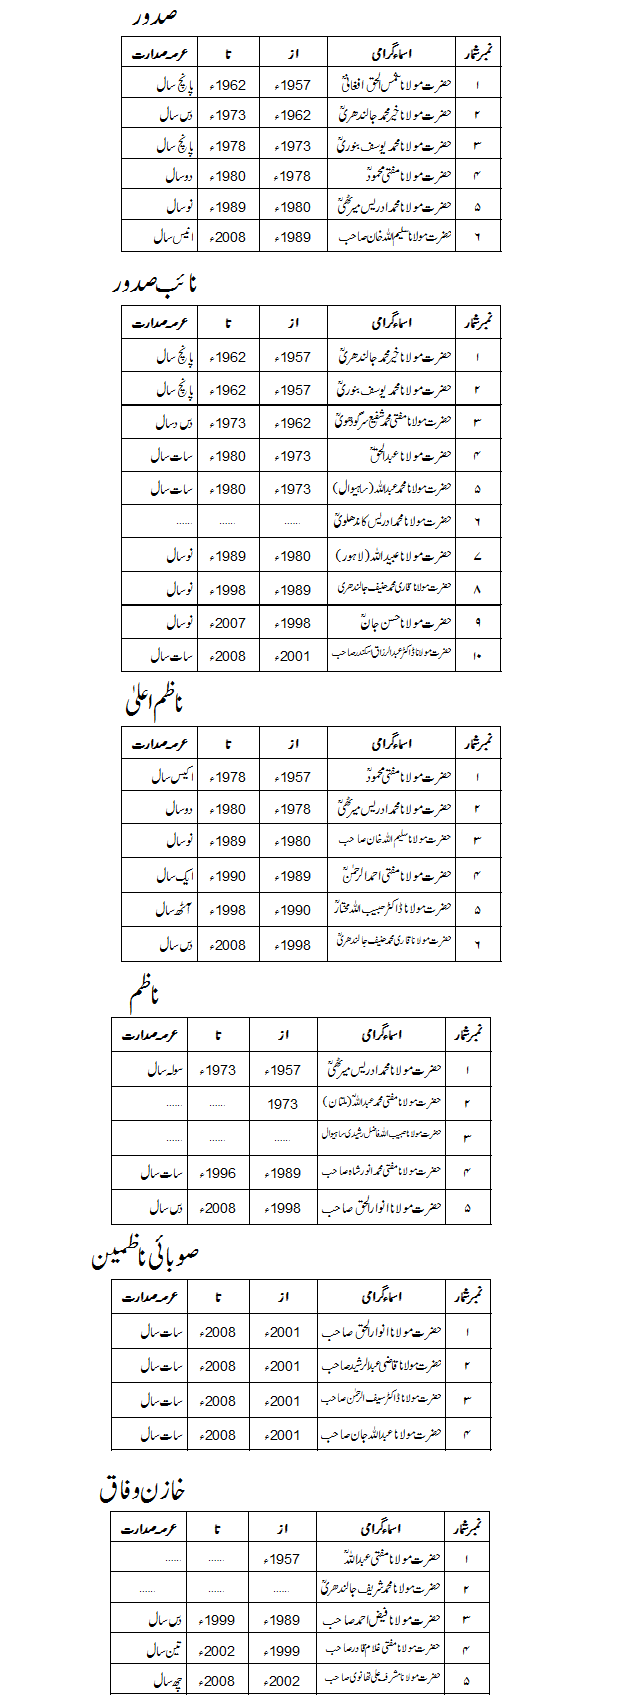 صدور
نمبرشمار اسماءگرامی از تا عرصہ صدارت
۱ حضرت مولانا شمس الحق افغانیؒ 1957ء 1962ء پانچ سال
۲ حضرت مولانا خیر محمد جالندھریؒ 1962ء 1973ء دس سال
۳ حضرت مولانا محمد یوسف بنوریؒ 1973ء 1978ء پانچ سال
۴ حضرت مولانا مفتی محمودؒ 1978ء 1980ء دو سال
۵ حضرت مولانا محمد ادریس میرٹھیؒ 1980ء 1989ء نو سال
۶ حضرت مولانا سلیم اللہ خان صاحب 1989ء 2008ء انیس سال
نائب صدور
نمبرشمار اسماءگرامی از تا عرصہ صدارت
۱ حضرت مولانا خیر محمد جالندھریؒ 1957ء 1962ء پانچ سال
۲ حضرت مولانا محمد یوسف بنوریؒ 1957ء 1962ء پانچ سال
۳ حضرت مولانا مفتی محمد شفیع سرگودھویؒ 1962ء 1973ء دس دسال
۴ حضرت مولانا عبدالحقؒ 1973ء 1980ء سات سال
۵ حضرت مولانا محمد عبداللہ (ساہیوال) 1973ء 1980ء سات سال
۶ حضرت مولانا محمد ادریس کاندھلویؒ ...... ...... ......
۷ حضرت مولانا عبیداللہ (لاہور) 1980ء 1989ء نو سال
۸ حضرت مولانا قاری محمد حنیف جالندھری 1989ء 1998ء نو سال
۹ حضرت مولانا حسن جانؒ 1998ء 2007ء نو سال
۱۰ حضرت مولانا ڈاکٹر عبدالرزاق سکندر صاحب 2001ء 2008ء سات سال
ناظم اعلیٰ
نمبرشمار اسماءگرامی از تا عرصہ صدارت
۱ حضرت مولانا مفتی محمودؒ 1957ء 1978ء اکیس سال
۲ حضرت مولانا محمد ادریس میرٹھیؒ 1978ء 1980ء دو سال
۳ حضرت مولانا سلیم اللہ خان صاحب 1980ء 1989ء نو سال
۴ حضرت مولانا مفتی احمد الرحمٰنؒ 1989ء 1990ء ایک سال
۵ حضرت مولانا ڈاکٹر حبیب اللہ مختارؒ 1990ء 1998ء آٹھ سال
۶ حضرت مولانا قاری محمد حنیف جالندھریؒ 1998ء 2008ء دس سال
ناظم
نمبرشمار اسماءگرامی از تا عرصہ صدارت
۱ حضرت مولانا محمد ادریس میرٹھیؒ 1957ء 1973ء سولہ سال
۲ حضرت مولانا مفتی محمد عبداللہؒ (ملتان) 1973 ...... ......
۳ حضرت مولانا حبیب اللہ فاضل رشیدی ساہیوال ...... ...... ......
۴ حضرت مولانا مفتی محمد انور شاہ صاحب 1989ء 1996ء سات سال
۵ حضرت مولانا انوارالحق صاحب 1998ء 2008ء دس سال
صوبائی ناظمین
نمبرشمار اسماءگرامی از تا عرصہ صدارت
۱ حضرت مولانا انوارالحق صاحب 2001ء 2008ء سات سال
۲ حضرت مولانا قاضی عبدالرشید صاحب 2001ء 2008ء سات سال
۳ حضرت مولانا ڈاکٹر سیف الرحمٰن صاحب 2001ء 2008ء سات سال
۴ حضرت مولانا عبداللہ جان صاحب 2001ء 2008ء سات سال
خازن وفاق
نمبرشمار اسماءگرامی از تا عرصہ صدارت
۱ حضرت مولانا مفتی عبداللہؒ 1957ء ...... ......
۲ حضرت مولانا محمد شریف جالندھریؒ ...... ...... ......
۳ حضرت مولانا فیض احمد صاحب 1989ء 1999ء دس سال
۴ حضرت مولانا مفتی غلام قادر صاحب 1999ء 2002ء تین سال
۵ حضرت مولانا مشرف علی تھانوی صاحب 2002ء 2008ء چھ سال